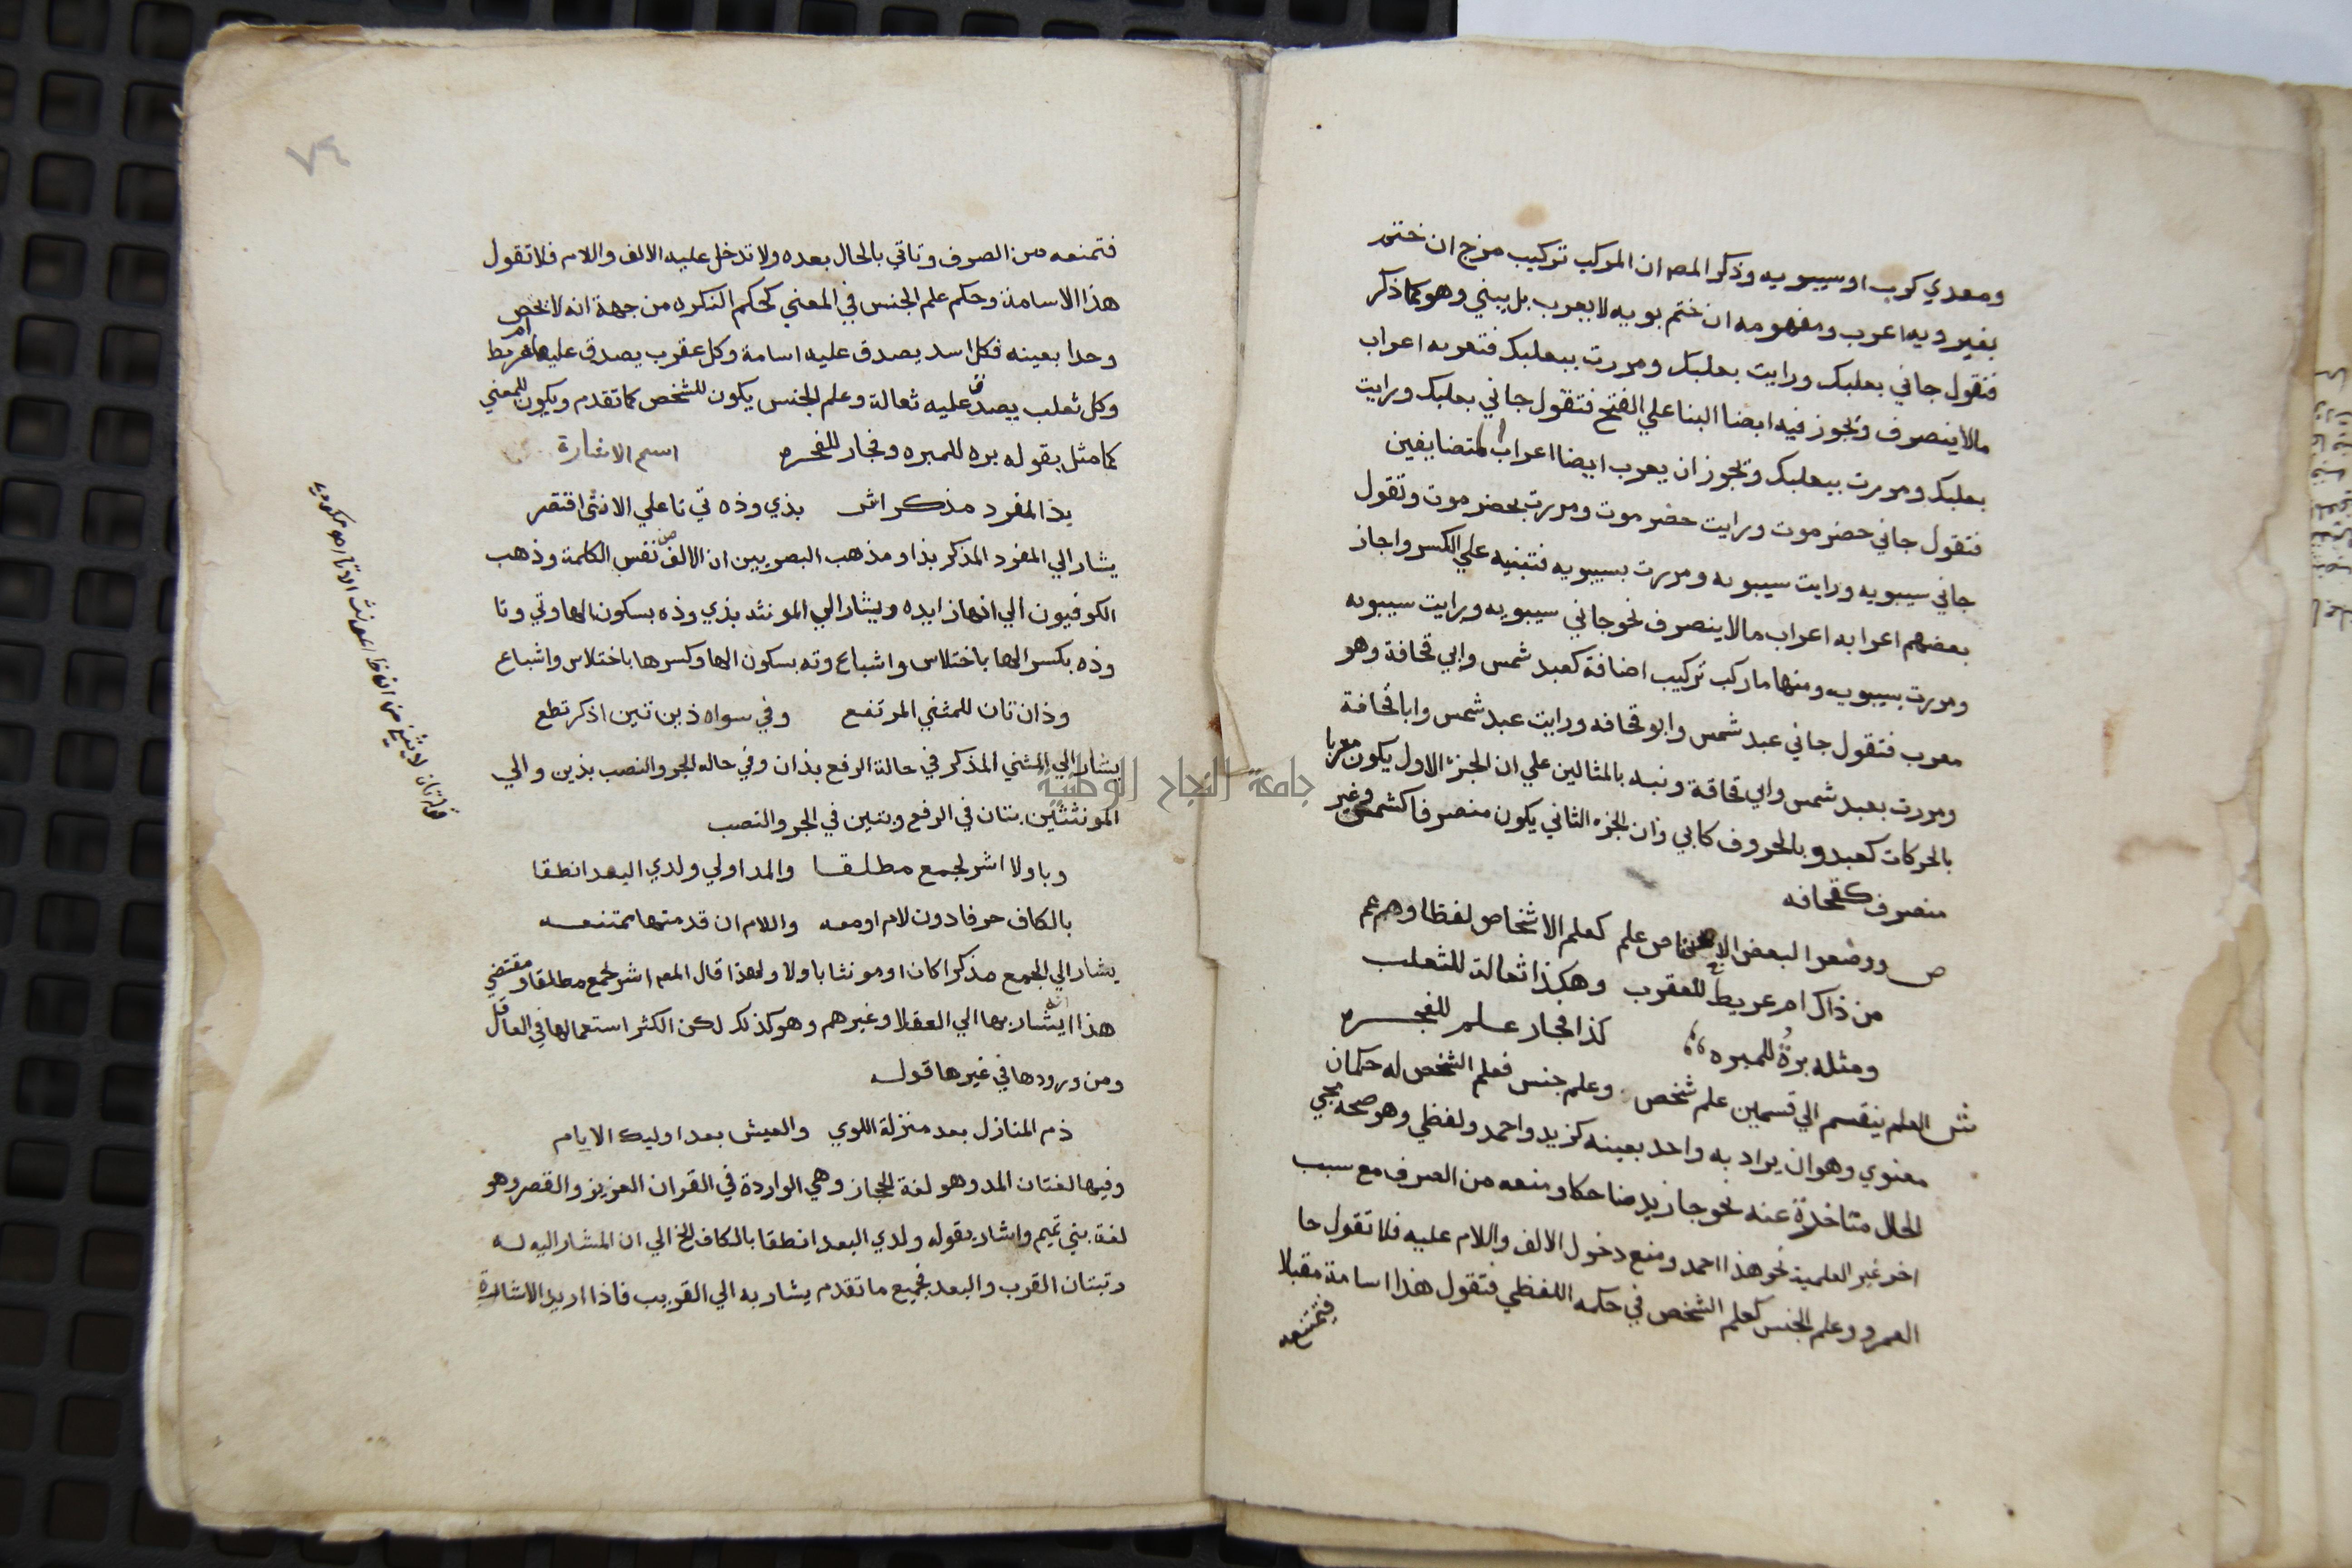 ومعدي كرب او سيبويه وذكر المصـ ان المركب تركيب مزج ان ختم
بغير ويه اعرب ومفهومه ان ختم بويه لا يعرب بل يبني وهو كما ذكر
فتقول جاني بعلبك ورايت بعلبك ومررت ببعلبك فتعربه اعراب
مالا ينصرف ويجوز فيه ايضا البنا علي الفتح فتقول جاني بعلبك ورايت
بعلبك ومررت ببعلبك ويجوز ان يعرب ايضا اعراب المتضايفين
فتقول جاني حضرموت ورايت حضرموت ومررت بحضرموت وتقول
جاني سيبويه ورايت سيبويه ومررت بسيبويه فتبنيه علي الكسر واجاز
بعضهم اعرابه اعراب مالا ينصرف نحو جاني سيبويه ورايت سيبويه
ومررت بسيبويه ومنها ما ركب تركيب اضافة كعبد شمس وابي قحافة وهو
معرب فتقول جاني عبد شمس وابو قحافه ورايت عبد شمس وابا قحافة
ومررت بعبد شمس وابي قحافة ونبه بالمثالين علي ان الجزء الاول يكون معربا
بالحركات كعبد وبالحروف كابي وان الجزء الثاني يكون منصرفا كشمس وغير
منصرف كقحافه
ص ووضعوا لبعض الاجناس علم كعلم الاشخاص لفظا وهو عم
من ذاك ام عريط للعقرب وهكذا ثعالة للثعلب
ومثله برة للمبره كذا فجار علم للفجره
ش العلم ينقسم الي قسمين علم شخص وعلم جنس فعلم الشخص له حكمان
معنوي وهو ان يراد به واحد بعينه كزيد واحمد ولفظي وهو صحه مجي
الحال متاخرة عنه نحو جا زيد ضاحكا ومنعه من الصرف مع سبب
اخر غير العلمية نحو هذا احمد ومنع دخول الالف واللام عليه فلا تقول جا
العمرو وعلم الجنس كعلم الشخص في حكمه اللفظي فتقول هذا اسامة مقبلا
فتمنعه
٧٤
فتمنعه من الصرف وتاتي بالحال بعده ولا تدخل عليه الالف واللام فلا تقول
هذا الاسامة وحكم علم الجنس في المعني كحكم النكره من جهة انه لا يخص
وحدا بعينه فكل اسد يصدق عليه اسامة وكل عقرب يصدق عليها ام عريط
وكل ثعلب يصدق عليه ثعالة وعلم الجنس يكون للشخص كما تقدم ويكون للمعني
كما مثل بقوله بره للمبره وفجار للفجره اسم الاشارة
بذا لمفرد مذكر اشر بذي وذه تي تا علي الانثى اقتصر
يشار الي المفرد المذكر بذا ومذهب البصريين ان الالف من نفس الكلمة وذهب
الكوفيون الي انها زايده ويشار الي المونثه بذي وذه بسكون الها وتي وتا
وذه بكسر الها باختلاس واشباع وته بسكون الها وكسرها باختلاس واشباع
وذان تان للمثني المرتفع وفي سواه ذين تين اذكر تطع
يشار الي المثني المذكر في حالة الرفع بذان وفي حاله الجر والنصب بذين والي
المونثتين بتان في الرفع وبتين في الجر والنصب
وباولا اشر لجمع مطلقا والمد اولي ولدي البعد انطقا
بالكاف حرفا دون لام او معه واللام ان قدمت ها ممتنعه
يشار الي الجمع مذكرا كان او مونثا باولا ولهذا قال المصـ اشر لجمع مطلقا ومقتضي
هذا انه يشار بها الي العقلا وغيرهم وهو كذلك لكن الكثر استعمالها في العاقل
ومن ورودها في غيرها قوله
ذم المنازل بعد منزلة اللوي والعيش بعد اوليك الايام
وفيها لغتان المد وهو لغة الحجاز وهي الواردة في القران العزيز والقصر وهو
لغة بني تميم واشار بقوله ولدي البعد انطقا بالكاف الخ الي ان المشار اليه له
رتبتان القرب والبعد فجميع ما تقدم يشار به الي القريب فاذا اريد الاشارة
جامعة النجاح الوطنية